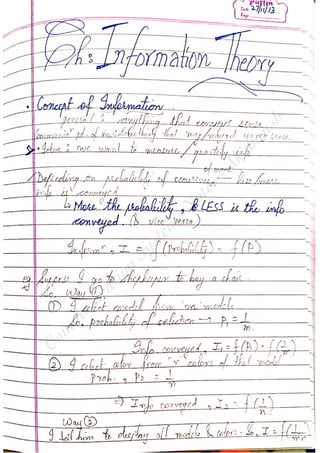 27/11/13
Ch: Information Theory
• Concept of Information
general is anything that conveys sense
• Intere is we want to measure / quantify info
of event
Depending on probability of occurrence less/more
info is conveyed
↳ More the probability, & LESS is the info
conveyed. (& vice versa)
Inform^n, I = f(Probability) = f(P)
eg Suppose I go to shopkeeper to buy a chair.
So, way (1)
① I select model from 'm' models
So, probability of selection → P₁ = 1/m
Info. conveyed, I₁ = f(P₁) = f(1/m)
② I select color from 'n' colors of that model
Prob., P₂ = 1/n
⇒ Info conveyed, I₂ = f(1/n)
Way (2)
I tell him to display all models & colors. So, I = f(1/mn)